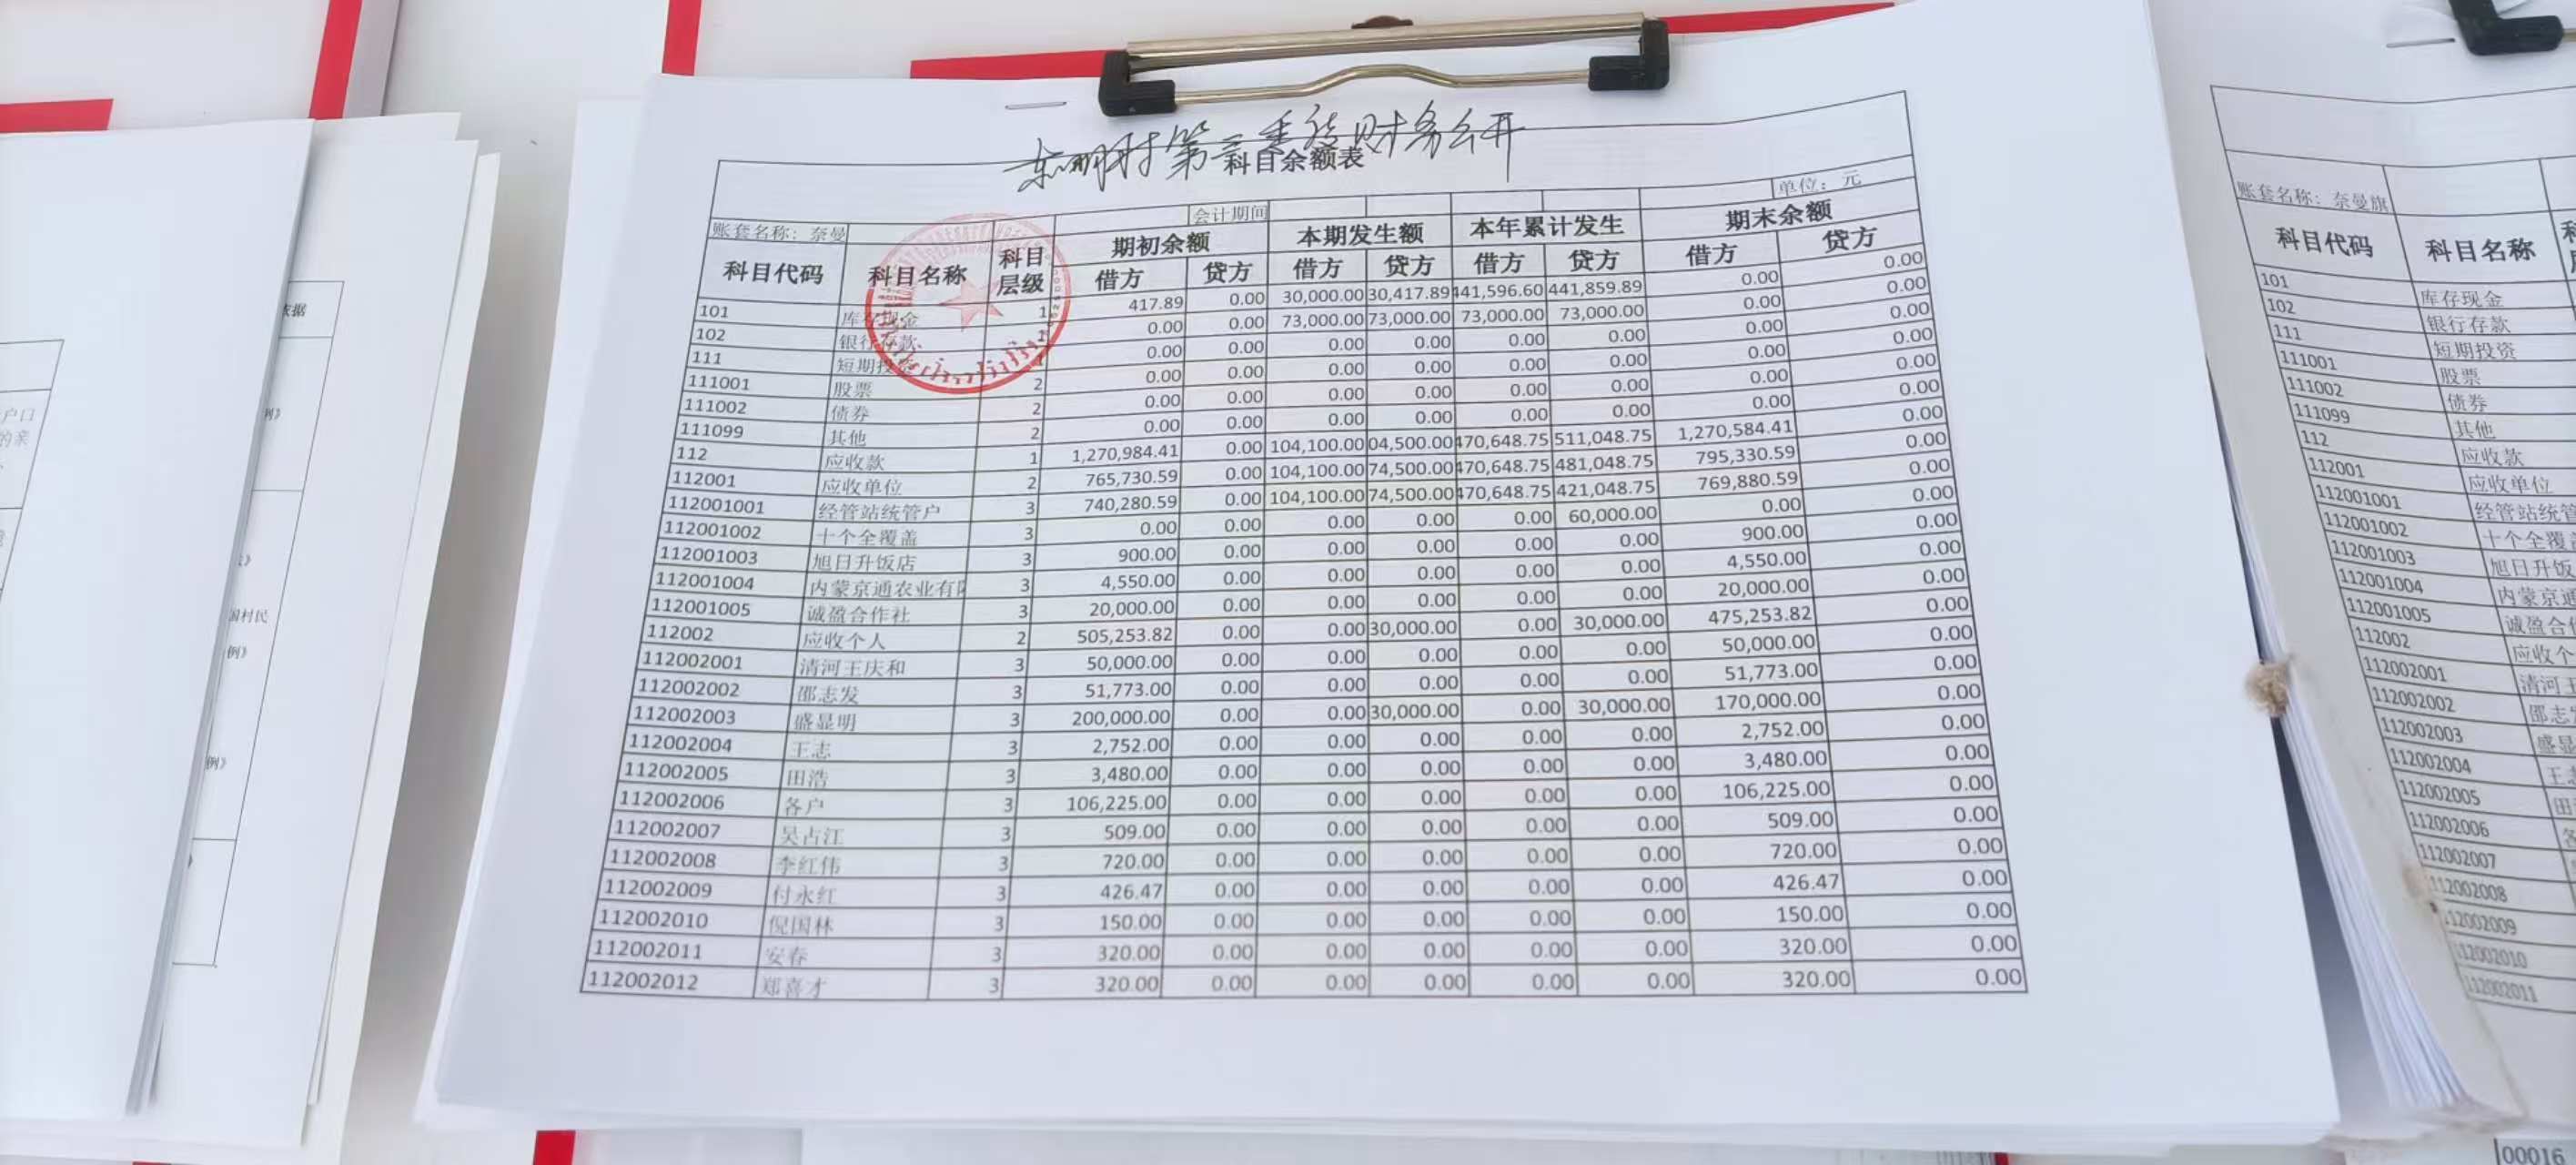 东明村第三季度财务公开
科目余额表
单位：元
账套名称：奈曼 会计期间
科目代码 科目名称 科目层级 期初余额 本期发生额 本年累计发生 期末余额
借方 贷方 借方 贷方 借方 贷方 借方 贷方
101 库存现金 1 417.89 0.00 30,000.00 30,417.89 441,596.60 441,859.89 0.00 0.00
102 银行存款 1 0.00 0.00 73,000.00 73,000.00 73,000.00 73,000.00 0.00 0.00
111 短期投 1 0.00 0.00 0.00 0.00 0.00 0.00 0.00 0.00
111001 股票 2 0.00 0.00 0.00 0.00 0.00 0.00 0.00 0.00
111002 债券 2 0.00 0.00 0.00 0.00 0.00 0.00 0.00 0.00
111099 其他 2 0.00 0.00 0.00 0.00 0.00 0.00 0.00 0.00
112 应收款 1 1,270,984.41 0.00 104,100.00 04,500.00 470,648.75 511,048.75 1,270,584.41 0.00
112001 应收单位 2 765,730.59 0.00 104,100.00 74,500.00 470,648.75 481,048.75 795,330.59 0.00
112001001 经管站统管户 3 740,280.59 0.00 104,100.00 74,500.00 470,648.75 421,048.75 769,880.59 0.00
112001002 十个全覆盖 3 0.00 0.00 0.00 0.00 0.00 60,000.00 0.00 0.00
112001003 旭日升饭店 3 900.00 0.00 0.00 0.00 0.00 0.00 900.00 0.00
112001004 内蒙京通农业有限 3 4,550.00 0.00 0.00 0.00 0.00 0.00 4,550.00 0.00
112001005 诚盈合作社 3 20,000.00 0.00 0.00 0.00 0.00 0.00 20,000.00 0.00
112002 应收个人 2 505,253.82 0.00 0.00 30,000.00 0.00 30,000.00 475,253.82 0.00
112002001 清河王庆和 3 50,000.00 0.00 0.00 0.00 0.00 0.00 50,000.00 0.00
112002002 邵志发 3 51,773.00 0.00 0.00 0.00 0.00 0.00 51,773.00 0.00
112002003 盛显明 3 200,000.00 0.00 0.00 30,000.00 0.00 30,000.00 170,000.00 0.00
112002004 王志 3 2,752.00 0.00 0.00 0.00 0.00 0.00 2,752.00 0.00
112002005 田浩 3 3,480.00 0.00 0.00 0.00 0.00 0.00 3,480.00 0.00
112002006 各户 3 106,225.00 0.00 0.00 0.00 0.00 0.00 106,225.00 0.00
112002007 吴占江 3 509.00 0.00 0.00 0.00 0.00 0.00 509.00 0.00
112002008 李红伟 3 720.00 0.00 0.00 0.00 0.00 0.00 720.00 0.00
112002009 付永红 3 426.47 0.00 0.00 0.00 0.00 0.00 426.47 0.00
112002010 倪国林 3 150.00 0.00 0.00 0.00 0.00 0.00 150.00 0.00
112002011 安春 3 320.00 0.00 0.00 0.00 0.00 0.00 320.00 0.00
112002012 郑喜才 3 320.00 0.00 0.00 0.00 0.00 0.00 320.00 0.00
账套名称：奈曼旗
科目代码 科目名称
101 库存现金
102 银行存款
111 短期投资
111001 股票
111002 债券
111099 其他
112 应收款
112001 应收单位
112001001 经管站统管
112001002 十个全覆盖
112001003 旭日升饭
112001004 内蒙京通
112001005 诚盈合作
112002 应收个
112002001 清河王
112002002 邵志发
112002003 盛显
112002004 王志
112002005 田
112002006 各
112002007
112002008
112002009
112002010
112002011
00016
依据
例》
户口
的亲
国村民
例》
例》